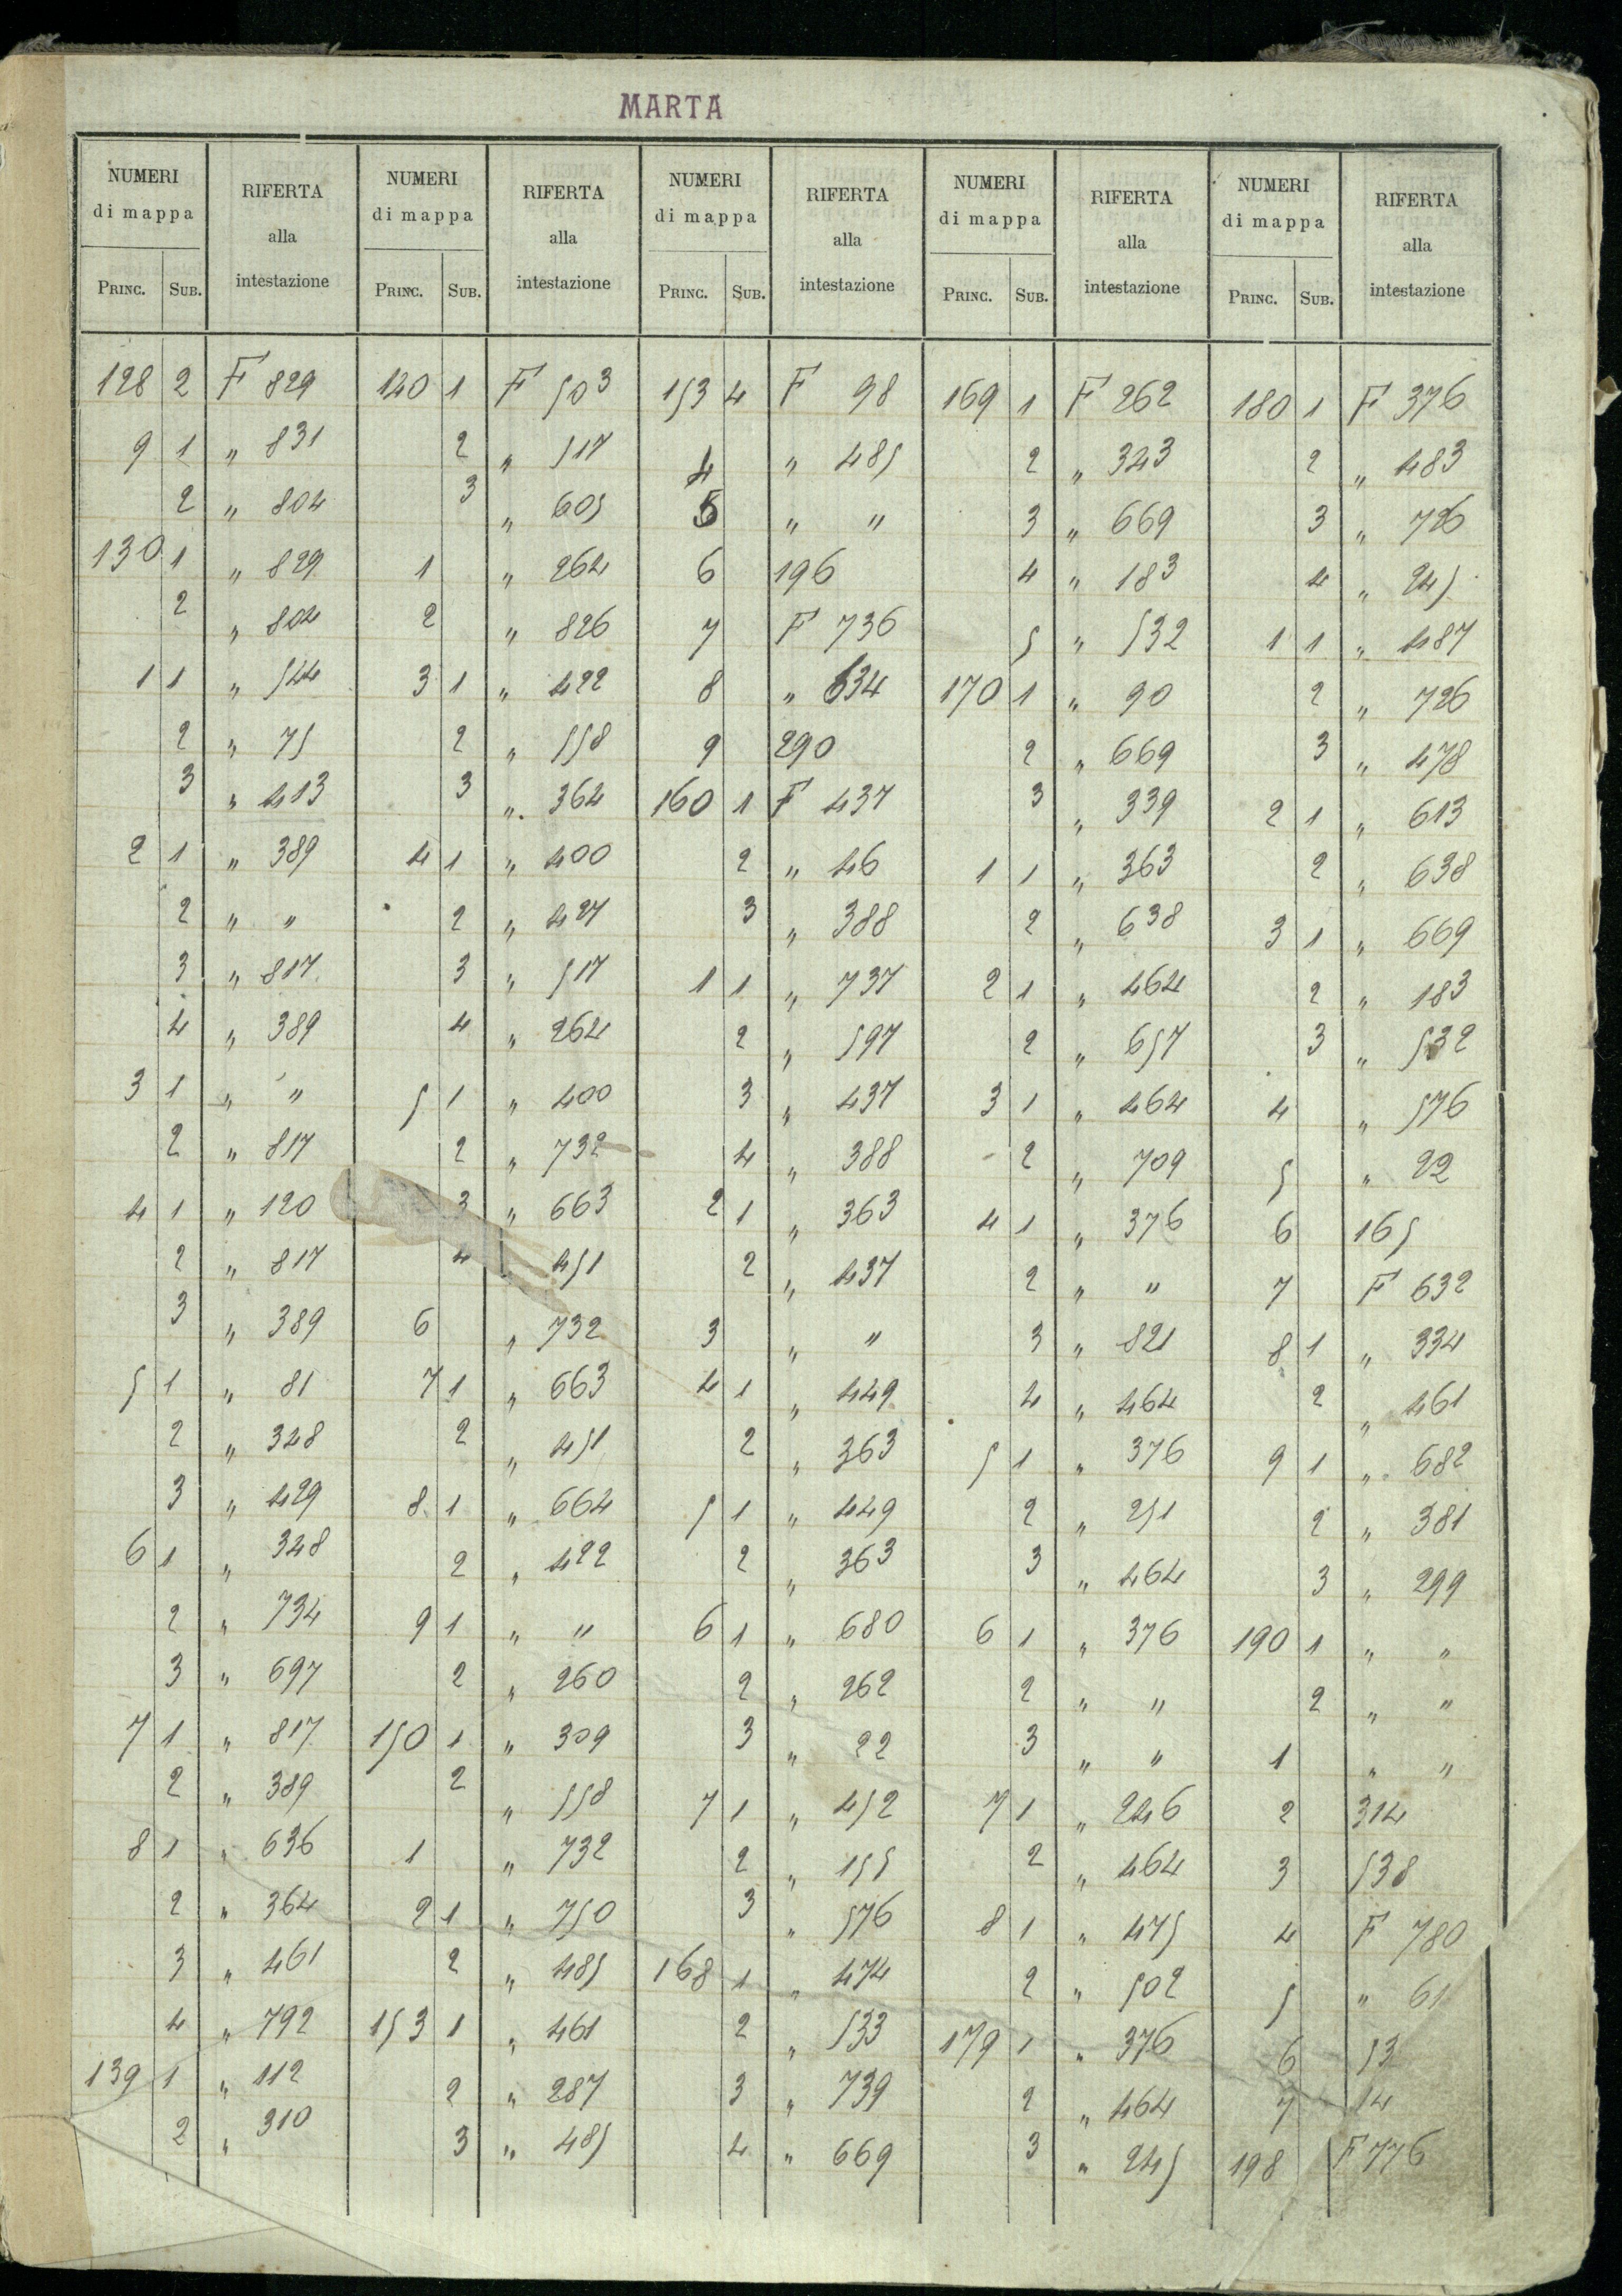 MARTA
NUMERI di mappa RIFERTA alla intestazione NUMERI di mappa RIFERTA alla intestazione NUMERI di mappa RIFERTA alla intestazione NUMERI di mappa RIFERTA alla intestazione NUMERI di mappa RIFERTA alla intestazione
PRINC. SUB. PRINC. SUB. PRINC. SUB. PRINC. SUB. PRINC. SUB.
128 2 F 829 140 1 F 503 153 4 F 98 169 1 F 262 180 1 F 376
9 1 " 831 2 " 517 4 " 485 2 " 343 2 " 483
2 " 804 3 " 605 5 " " 3 " 669 3 " 726
130 1 " 829 1 " 264 6 196 4 " 183 4 " 245
2 " 804 2 " 826 7 F 736 5 " 532 1 1 " 487
1 1 " 544 3 1 " 422 8 " 634 170 1 " 90 2 " 726
2 " 75 2 " 558 9 290 2 " 669 3 " 478
3 " 413 3 " 364 160 1 F 437 3 " 339 2 1 " 613
2 1 " 389 4 1 " 400 2 " 46 1 1 " 363 2 " 638
2 " " 2 " 427 3 " 388 2 " 638 3 1 " 669
3 " 817 3 " 517 1 1 " 737 2 1 " 464 2 " 183
4 " 389 4 " 264 2 " 597 2 " 657 3 " 532
3 1 " " 5 1 " 400 3 " 437 3 1 " 464 4 " 576
2 " 817 2 " 732 4 " 388 2 " 709 5 " 22
4 1 " 120 3 " 663 2 1 " 363 4 1 " 376 6 165
2 " 817 4 451 2 " 437 2 " " 7 F 632
3 " 389 6 " 732 3 " " 3 " 821 8 1 " 334
5 1 " 81 7 1 " 663 4 1 " 449 4 " 464 2 " 461
2 " 348 2 " 451 2 " 363 5 1 " 376 9 1 " 682
3 " 429 8 1 " 664 5 1 " 449 2 " 251 2 " 381
6 1 " 348 2 " 422 2 " 363 3 " 464 3 " 299
2 " 734 9 1 " " 6 1 " 680 6 1 " 376 190 1 " "
3 " 697 2 " 260 2 " 262 2 " " 2 " "
7 1 " 817 150 1 " 309 3 " 22 3 " " 1 " "
2 " 389 2 " 558 7 1 " 452 7 1 " 246 2 314
8 1 " 636 1 " 732 2 " 155 2 " 464 3 538
2 " 364 2 1 " 750 3 " 576 8 1 " 475 4 F 780
3 " 461 2 " 485 168 1 " 474 2 " 502 5 " 61
4 " 792 153 1 " 461 2 " 533 179 1 " 376 6 53
139 1 " 112 2 " 287 3 " 739 2 " 464 7 14
2 " 310 3 " 485 4 " 669 3 " 245 198 F 776